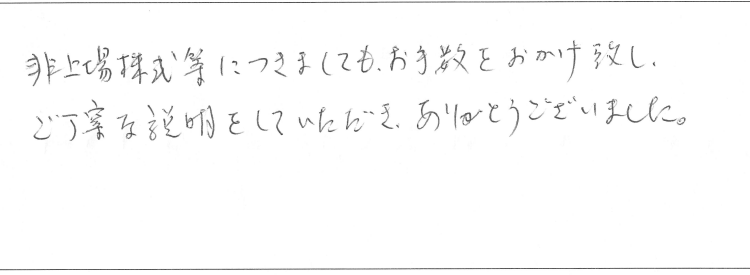 非上場株式等につきましても、お手数をおかけ致し、
ご丁寧な説明をしていただき、ありがとうございました。